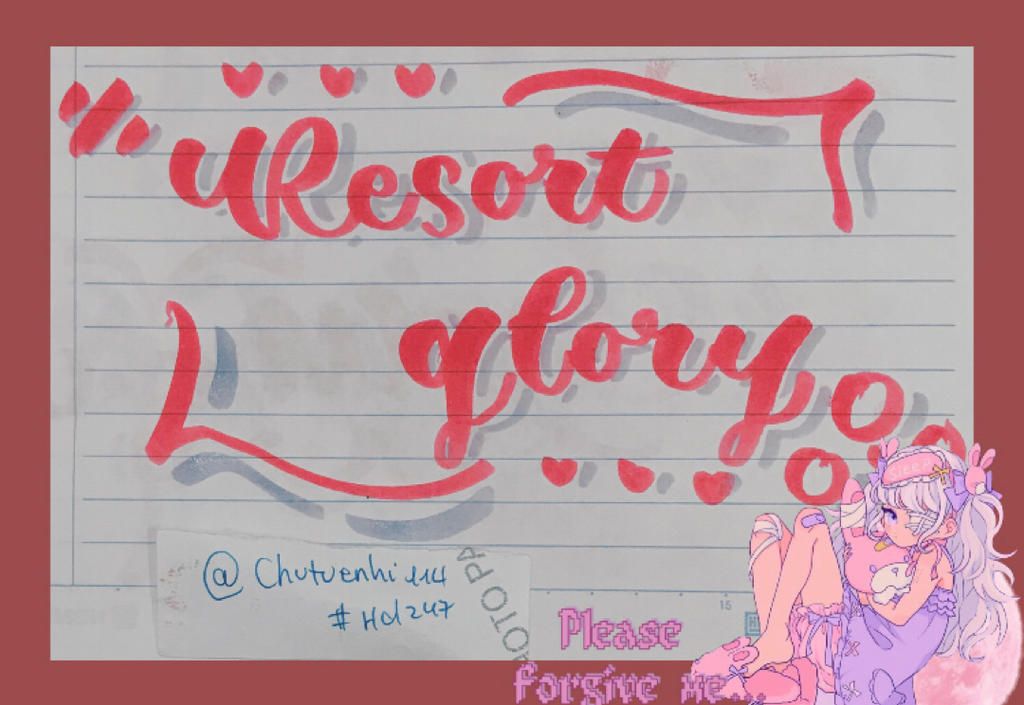 Resort
glory
@Chutuenhi114
#Hd247
OTO PA
15
Please
forgive me...